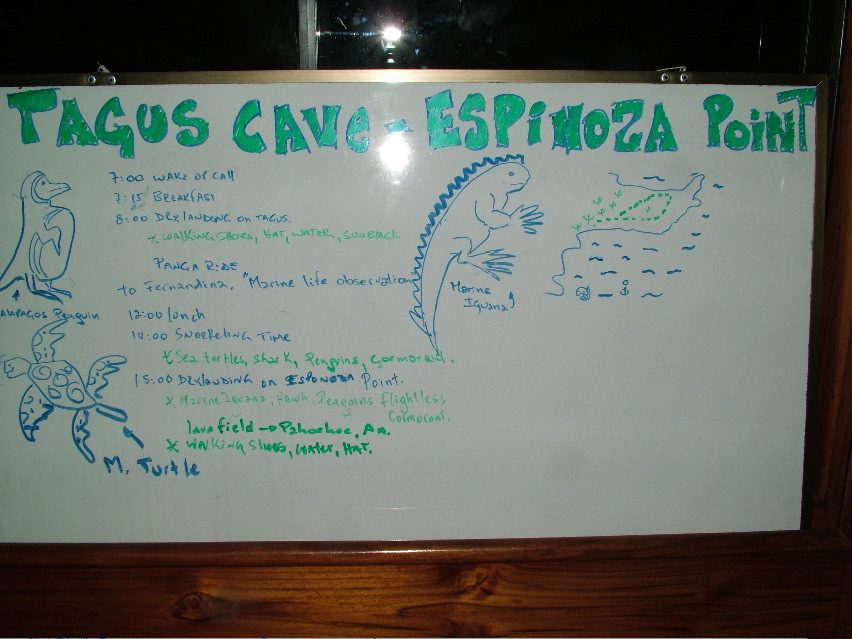 TAGUS CAVE - ESPINOZA POINT
7:00 WAKE UP CALL
7:15 BREAKFAST
8:00 DRY LANDING ON TAGUS.
* WALKING SHOES, HAT, WATER, SUNBLACK
PANGA RIDE
to Fernandina, "Marine life observation
GALAPAGOS Penguin
12:00 lunch
14:00 SNORKELING TIME
* Sea tortles, shark, Penguins, Cormorant.
15:00 DRY LANDING on ESPONOZA Point.
* Marine Iguana, Hawk, Penguins, flightless
Cormorant.
lava field → Pahoehoe, AA.
* WALKING SHOES, WATER, HAT.
M. Turtle
Marine
Iguana